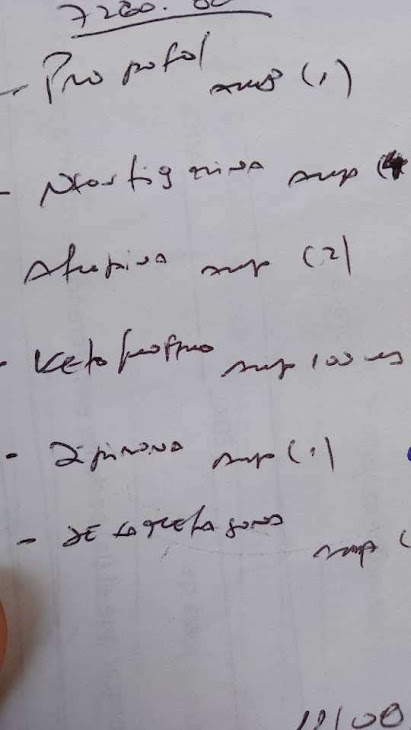 7280.00
- Propofol amp (1)
- Neostigmina amp (4
Atropina amp (2)
- Ketoprofeno amp 100 mg
- Dipirona amp (1)
- Dexametasona amp (